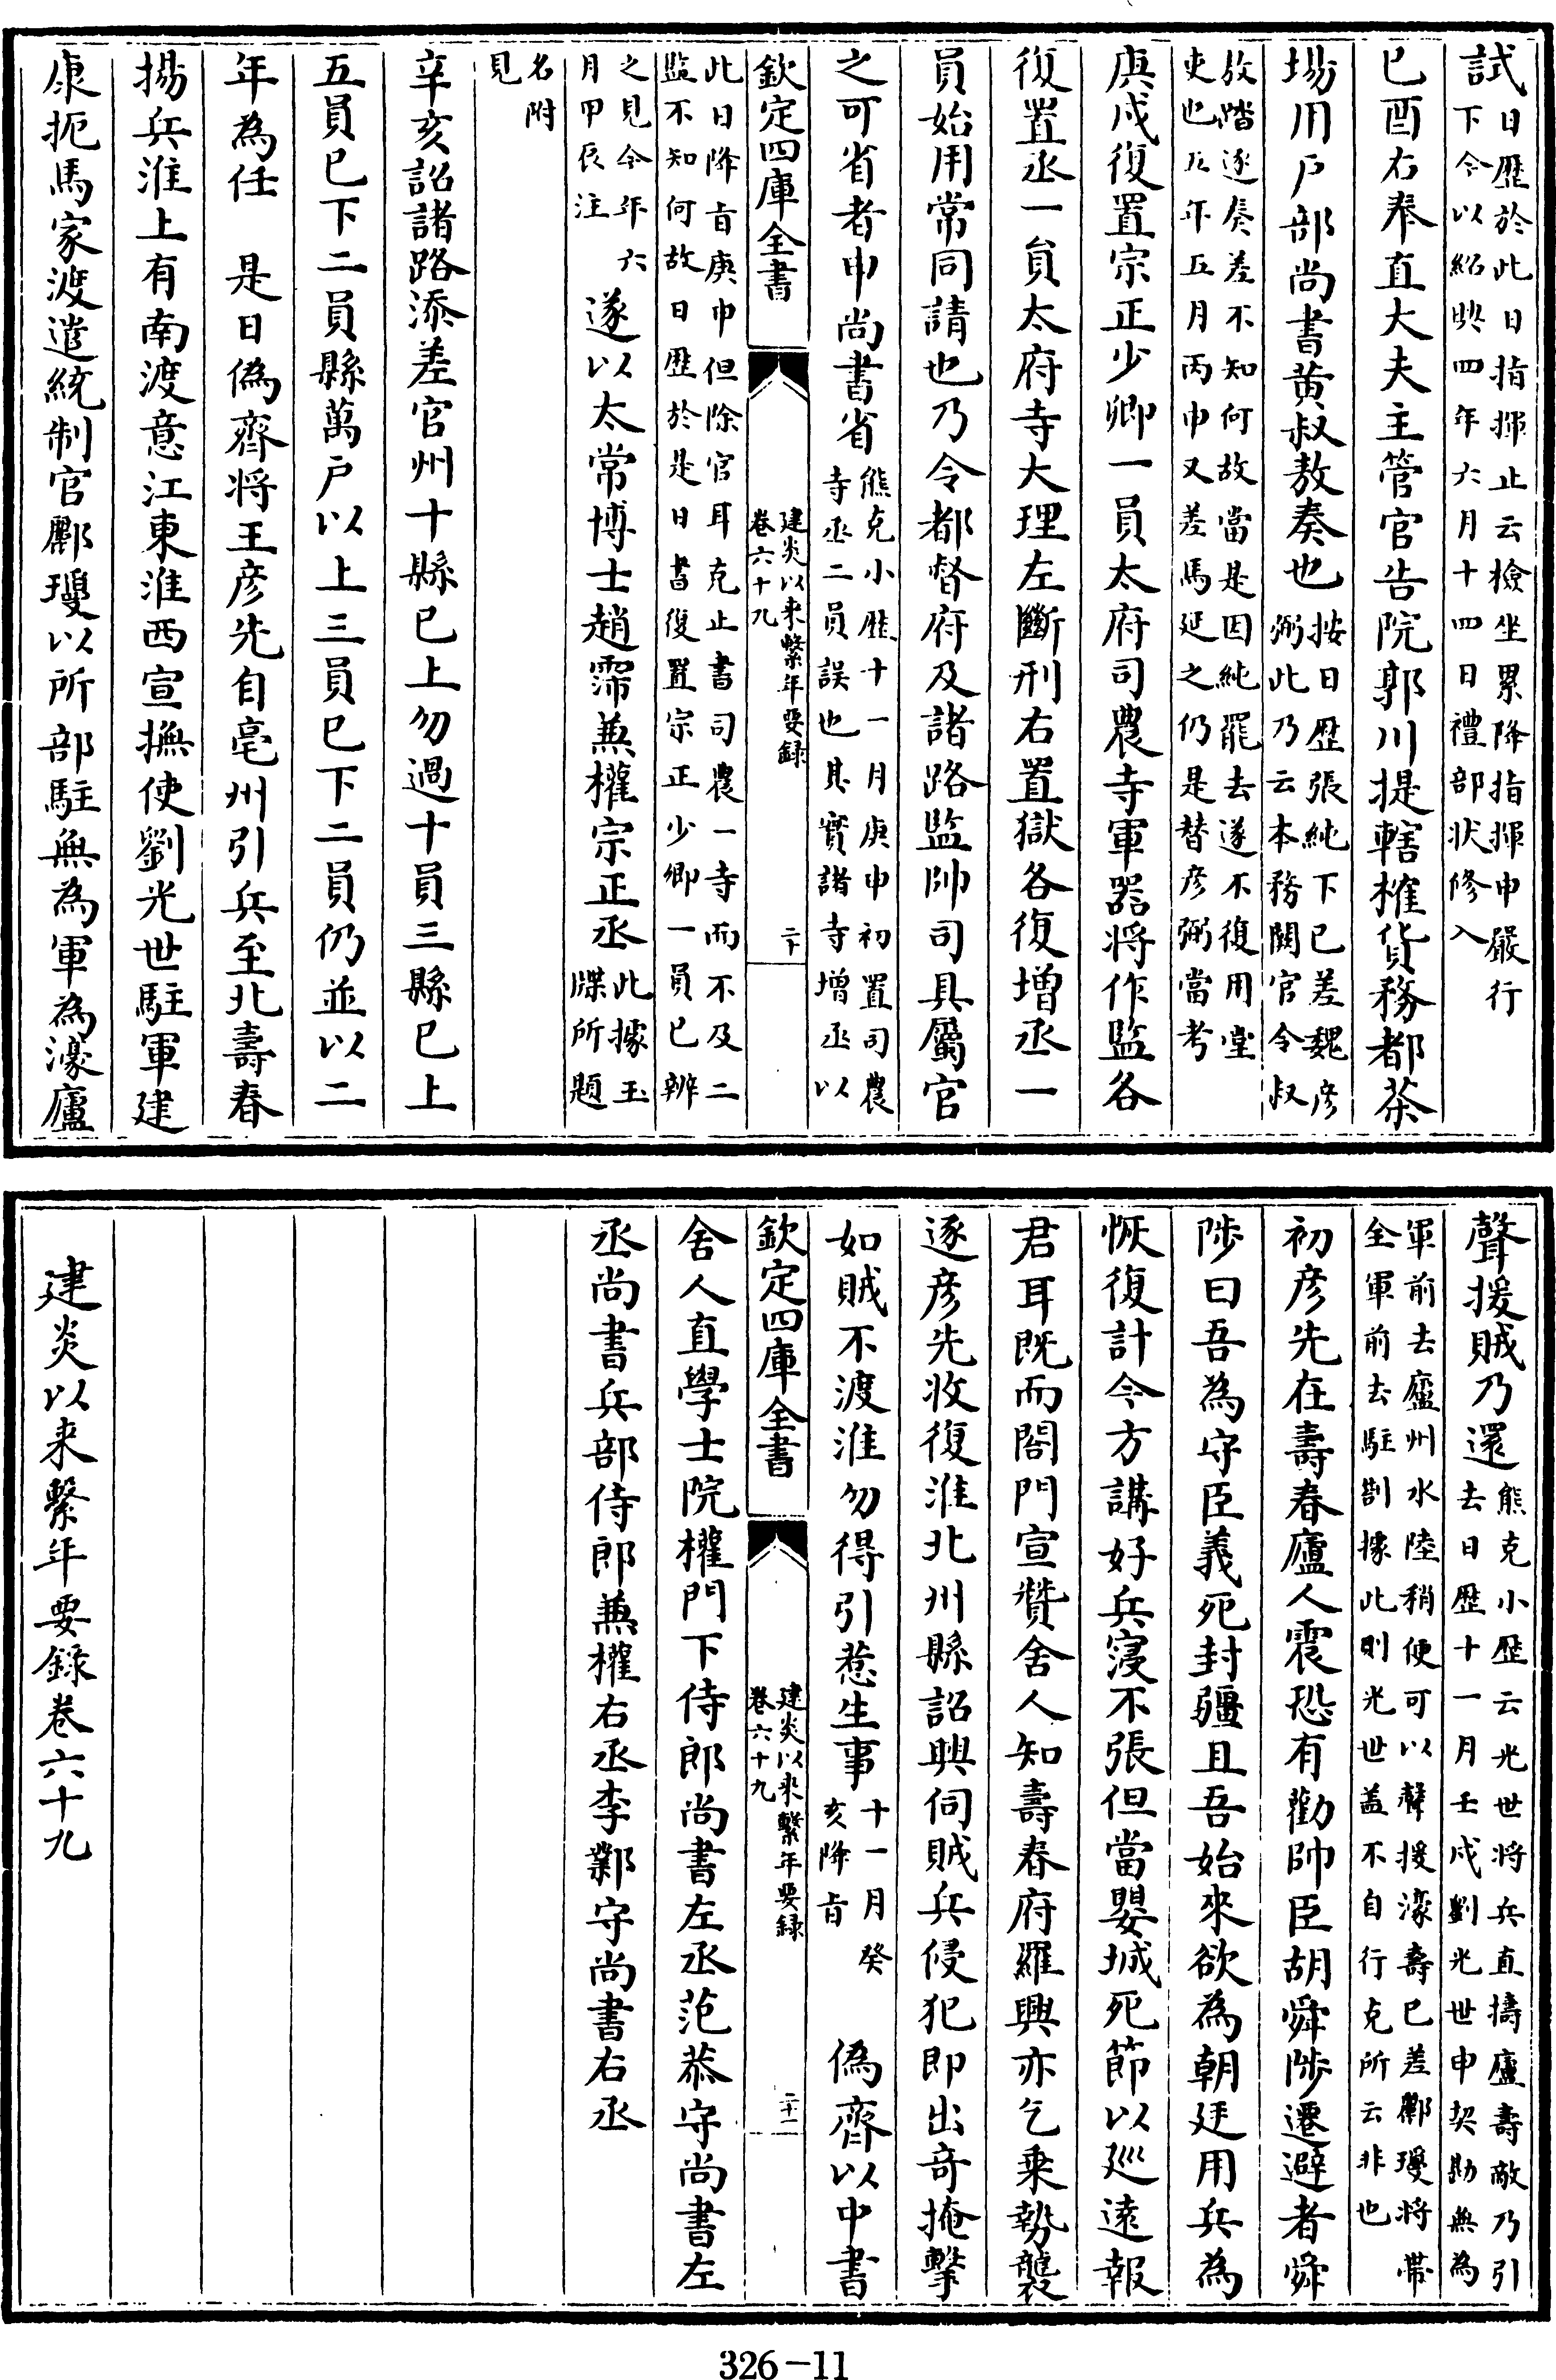 試日歷於此日指揮止云檢坐累降指揮申嚴行
下今以紹興四年六月十四日禮部狀修入
己酉右奉直大夫主管官告院郭川提轄榷貨務都茶
場用戶部尚書黃叔敖奏也按日歷張純下已差魏彥
弼此乃云本務闕官令叔
敖踏逐奏差不知何故當是因純罷去遂不復用堂
吏也五年五月丙申又差馬延之仍是替彥弼當考
庚戌復置宗正少卿一員太府司農寺軍器將作監各
復置丞一員太府寺大理左斷刑右置獄各復增丞一
員始用常同請也乃令都督府及諸路監帥司具屬官
之可省者申尚書省熊克小歷十一月庚申初置司農
寺丞二員誤也其實諸寺增丞以
欽定四庫全書
建炎以來繫年要錄
卷六十九
二十
此日降旨庚申但除官耳克止書司農一寺而不及二
監不知何故日歷於是日書復置宗正少卿一員已辨
之見今年六
月甲辰注
遂以太常博士趙霈兼權宗正丞此據玉
牒所題
名附
見
辛亥詔諸路添差官州十縣已上勿過十員三縣已上
五員已下二員縣萬戶以上三員已下二員仍並以二
年為任　是日偽齊將王彥先自亳州引兵至北壽春
揚兵淮上有南渡意江東淮西宣撫使劉光世駐軍建
康扼馬家渡遣統制官酈瓊以所部駐無為軍為濠廬
聲援賊乃還熊克小歷云光世將兵直擣廬壽敵乃引
去日歷十一月壬戌劉光世申契勘無為
軍前去廬州水陸稍便可以聲援濠壽已差酈瓊將帶
全軍前去駐劄據此則光世蓋不自行克所云非也
初彥先在壽春廬人震恐有勸帥臣胡舜陟遷避者舜
陟曰吾為守臣義死封疆且吾始來欲為朝廷用兵為
恢復計今方講好兵寖不張但當嬰城死節以巡遠報
君耳既而閤門宣贊舍人知壽春府羅興亦乞乘勢襲
逐彥先收復淮北州縣詔興伺賊兵侵犯即出奇掩擊
如賊不渡淮勿得引惹生事十一月癸
亥降旨
偽齊以中書
欽定四庫全書
建炎以來繫年要錄
卷六十九
二十一
舍人直學士院權門下侍郎尚書左丞范恭守尚書左
丞尚書兵部侍郎兼權右丞李鄴守尚書右丞
建炎以來繫年要錄卷六十九
326-11